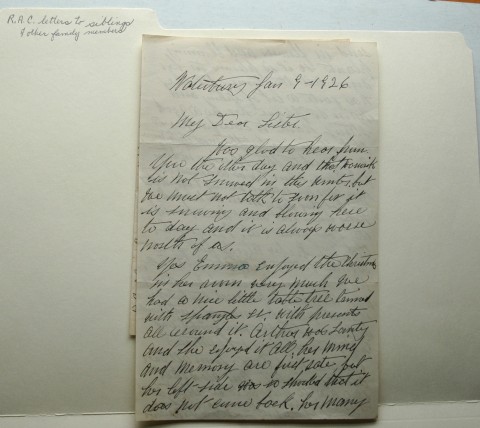 R.A.C. letters to siblings
& other family members
Waterbury Jan 9-1926
My Dear Sister
Was glad to hear from
You the other day and that
is not snowed in this winter, but
we must not talk to soon for it
is snowing and blowing here
to day and it is always worse
north of us.
Yes Emma enjoyed the Christmas
in her own way very much we
had a nice little table tree trimed
with spangles &c. with presents
all around it. Arthur was Santy
and she enjoyed it all, her mind
and memory are first rate, but
her left side is so that it
does not come back. has many